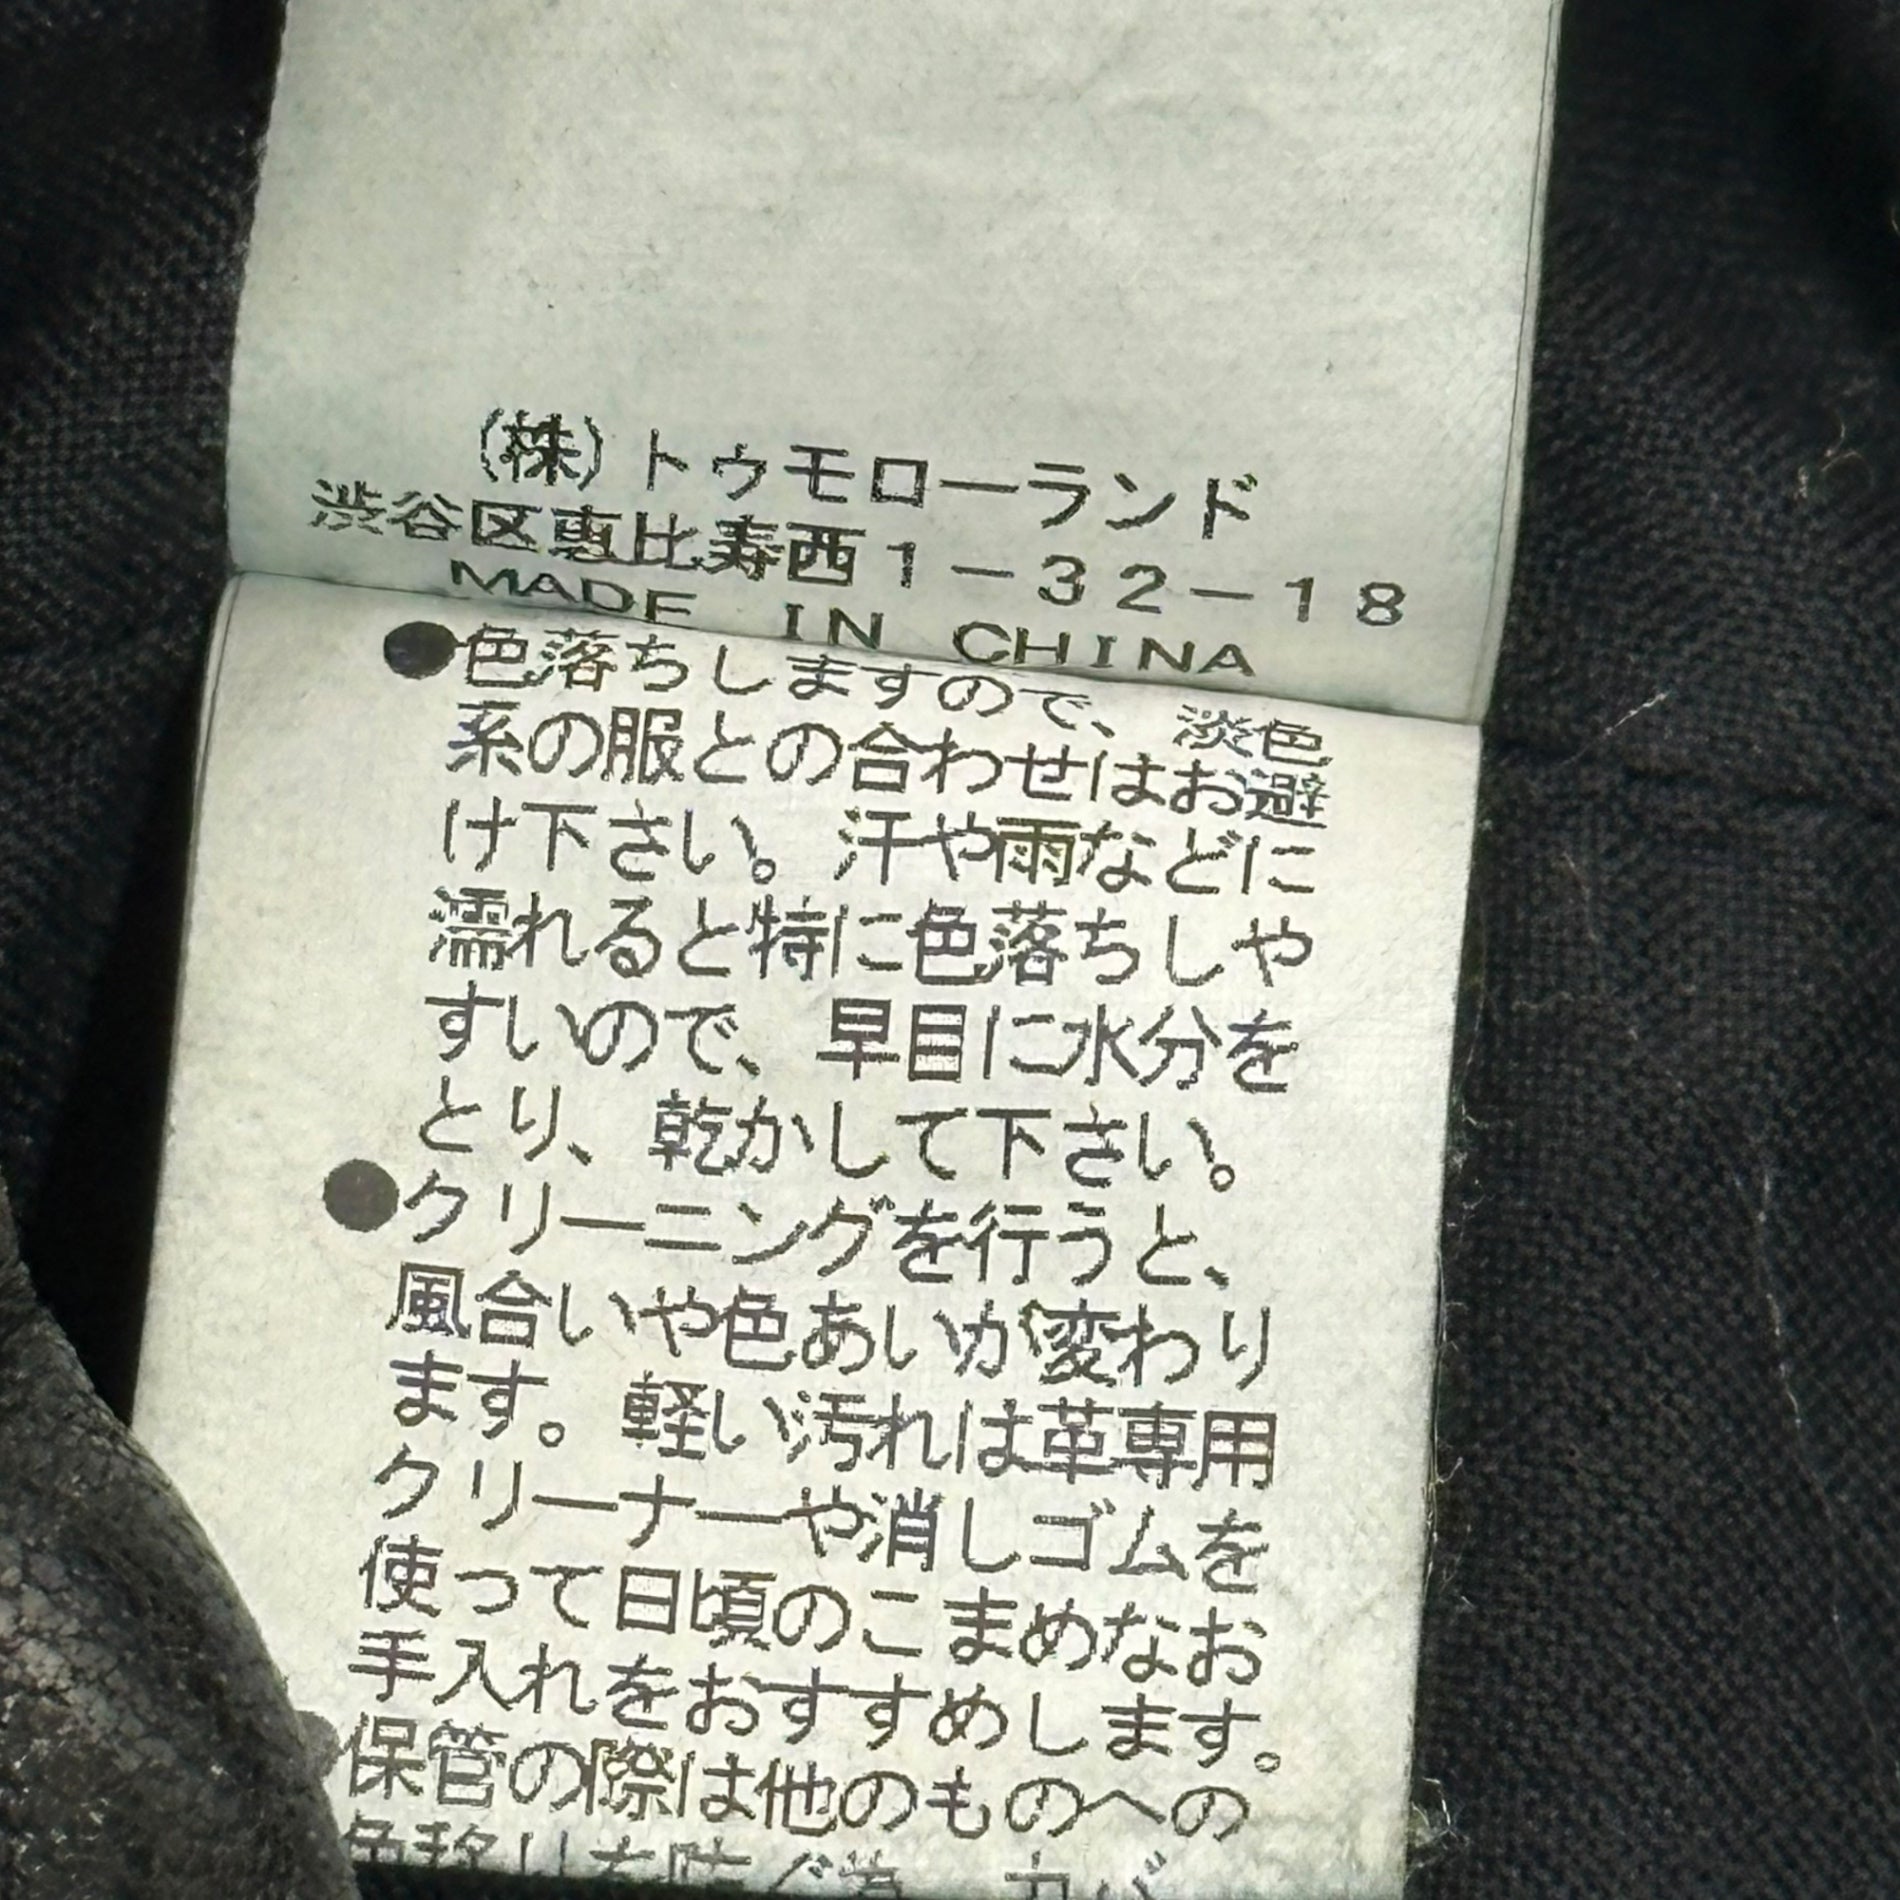 (株)トゥモローランド
渋谷区恵比寿西1-32-18
MADE IN CHINA
●色落ちしますので、淡色
系の服との合わせはお避
け下さい。汗や雨などに
濡れると特に色落ちしや
すいので、早目に水分を
とり、乾かして下さい。
●クリーニングを行うと、
風合いや色あいが変わり
ます。軽い汚れは革専用
クリーナーや消しゴムを
使って日頃のこまめなお
手入れをおすすめします。
●保管の際は他のものへの
色移りを防ぐ為、カバ